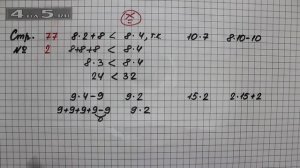 4 на 5 .ru
Стр. 77 8·2+8 < 8·4, т.к. 10·7 8·10-10
№ 2 8+8+8 < 8·4
8·3 < 8·4
24 < 32
9·4-9 9·2 15·2 2·15+2
9+9+9+9-9 9·2
0